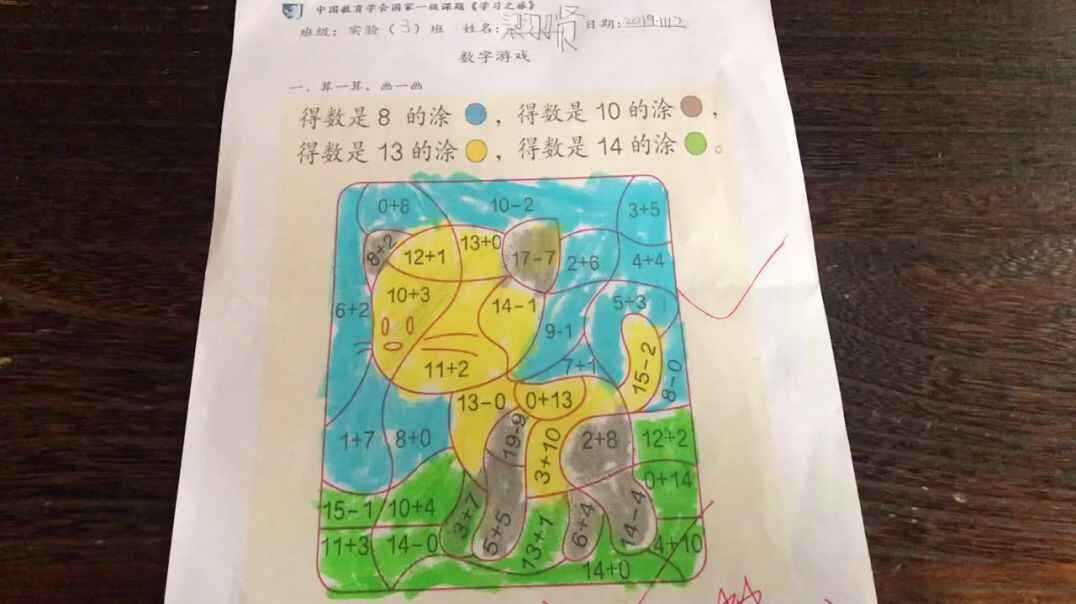 中国教育学会国家一级课题《学习之旅》
班级：实验（3）班 姓名： 日期：2019.11.12
数字游戏
一、算一算、画一画
得数是 8 的涂 ，得数是 10 的涂 ，
得数是 13 的涂 ，得数是 14 的涂 。
0+8 10-2 3+5
8+2 12+1 13+0 17-7 2+6 4+4
6+2 10+3 14-1 5+3
9-1
11+2 7+1 15-2 8-0
13-0 0+13
1+7 8+0 19-9 3+10 2+8 12+2
0+14
15-1 10+4 3+7 5+5 13+1 6+4 14-4
11+3 14-0 4+10
14+0